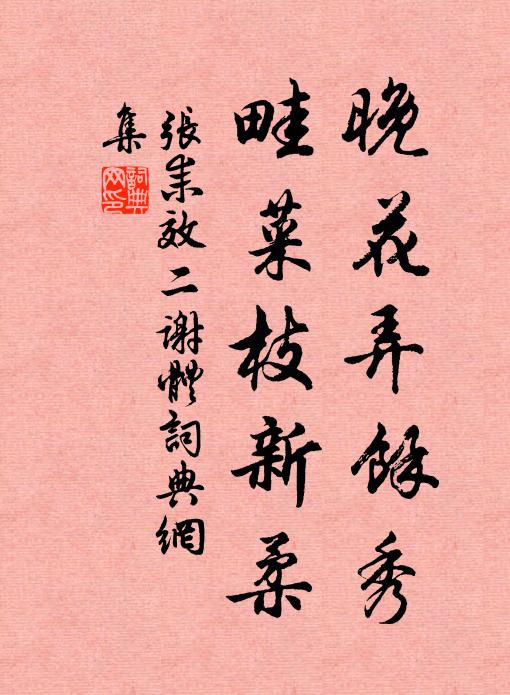 晚花弄餘秀
畦菜枝新柔
張耒效二謝體詞典網
集
詞典
网印